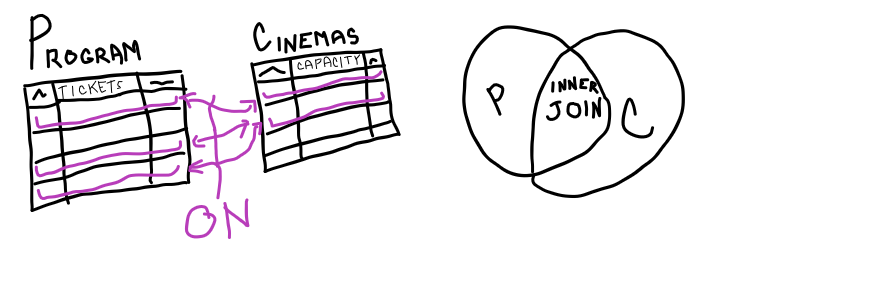 PROGRAM
TICKETS
CINEMAS
CAPACITY
ON
P
INNER
JOIN
C